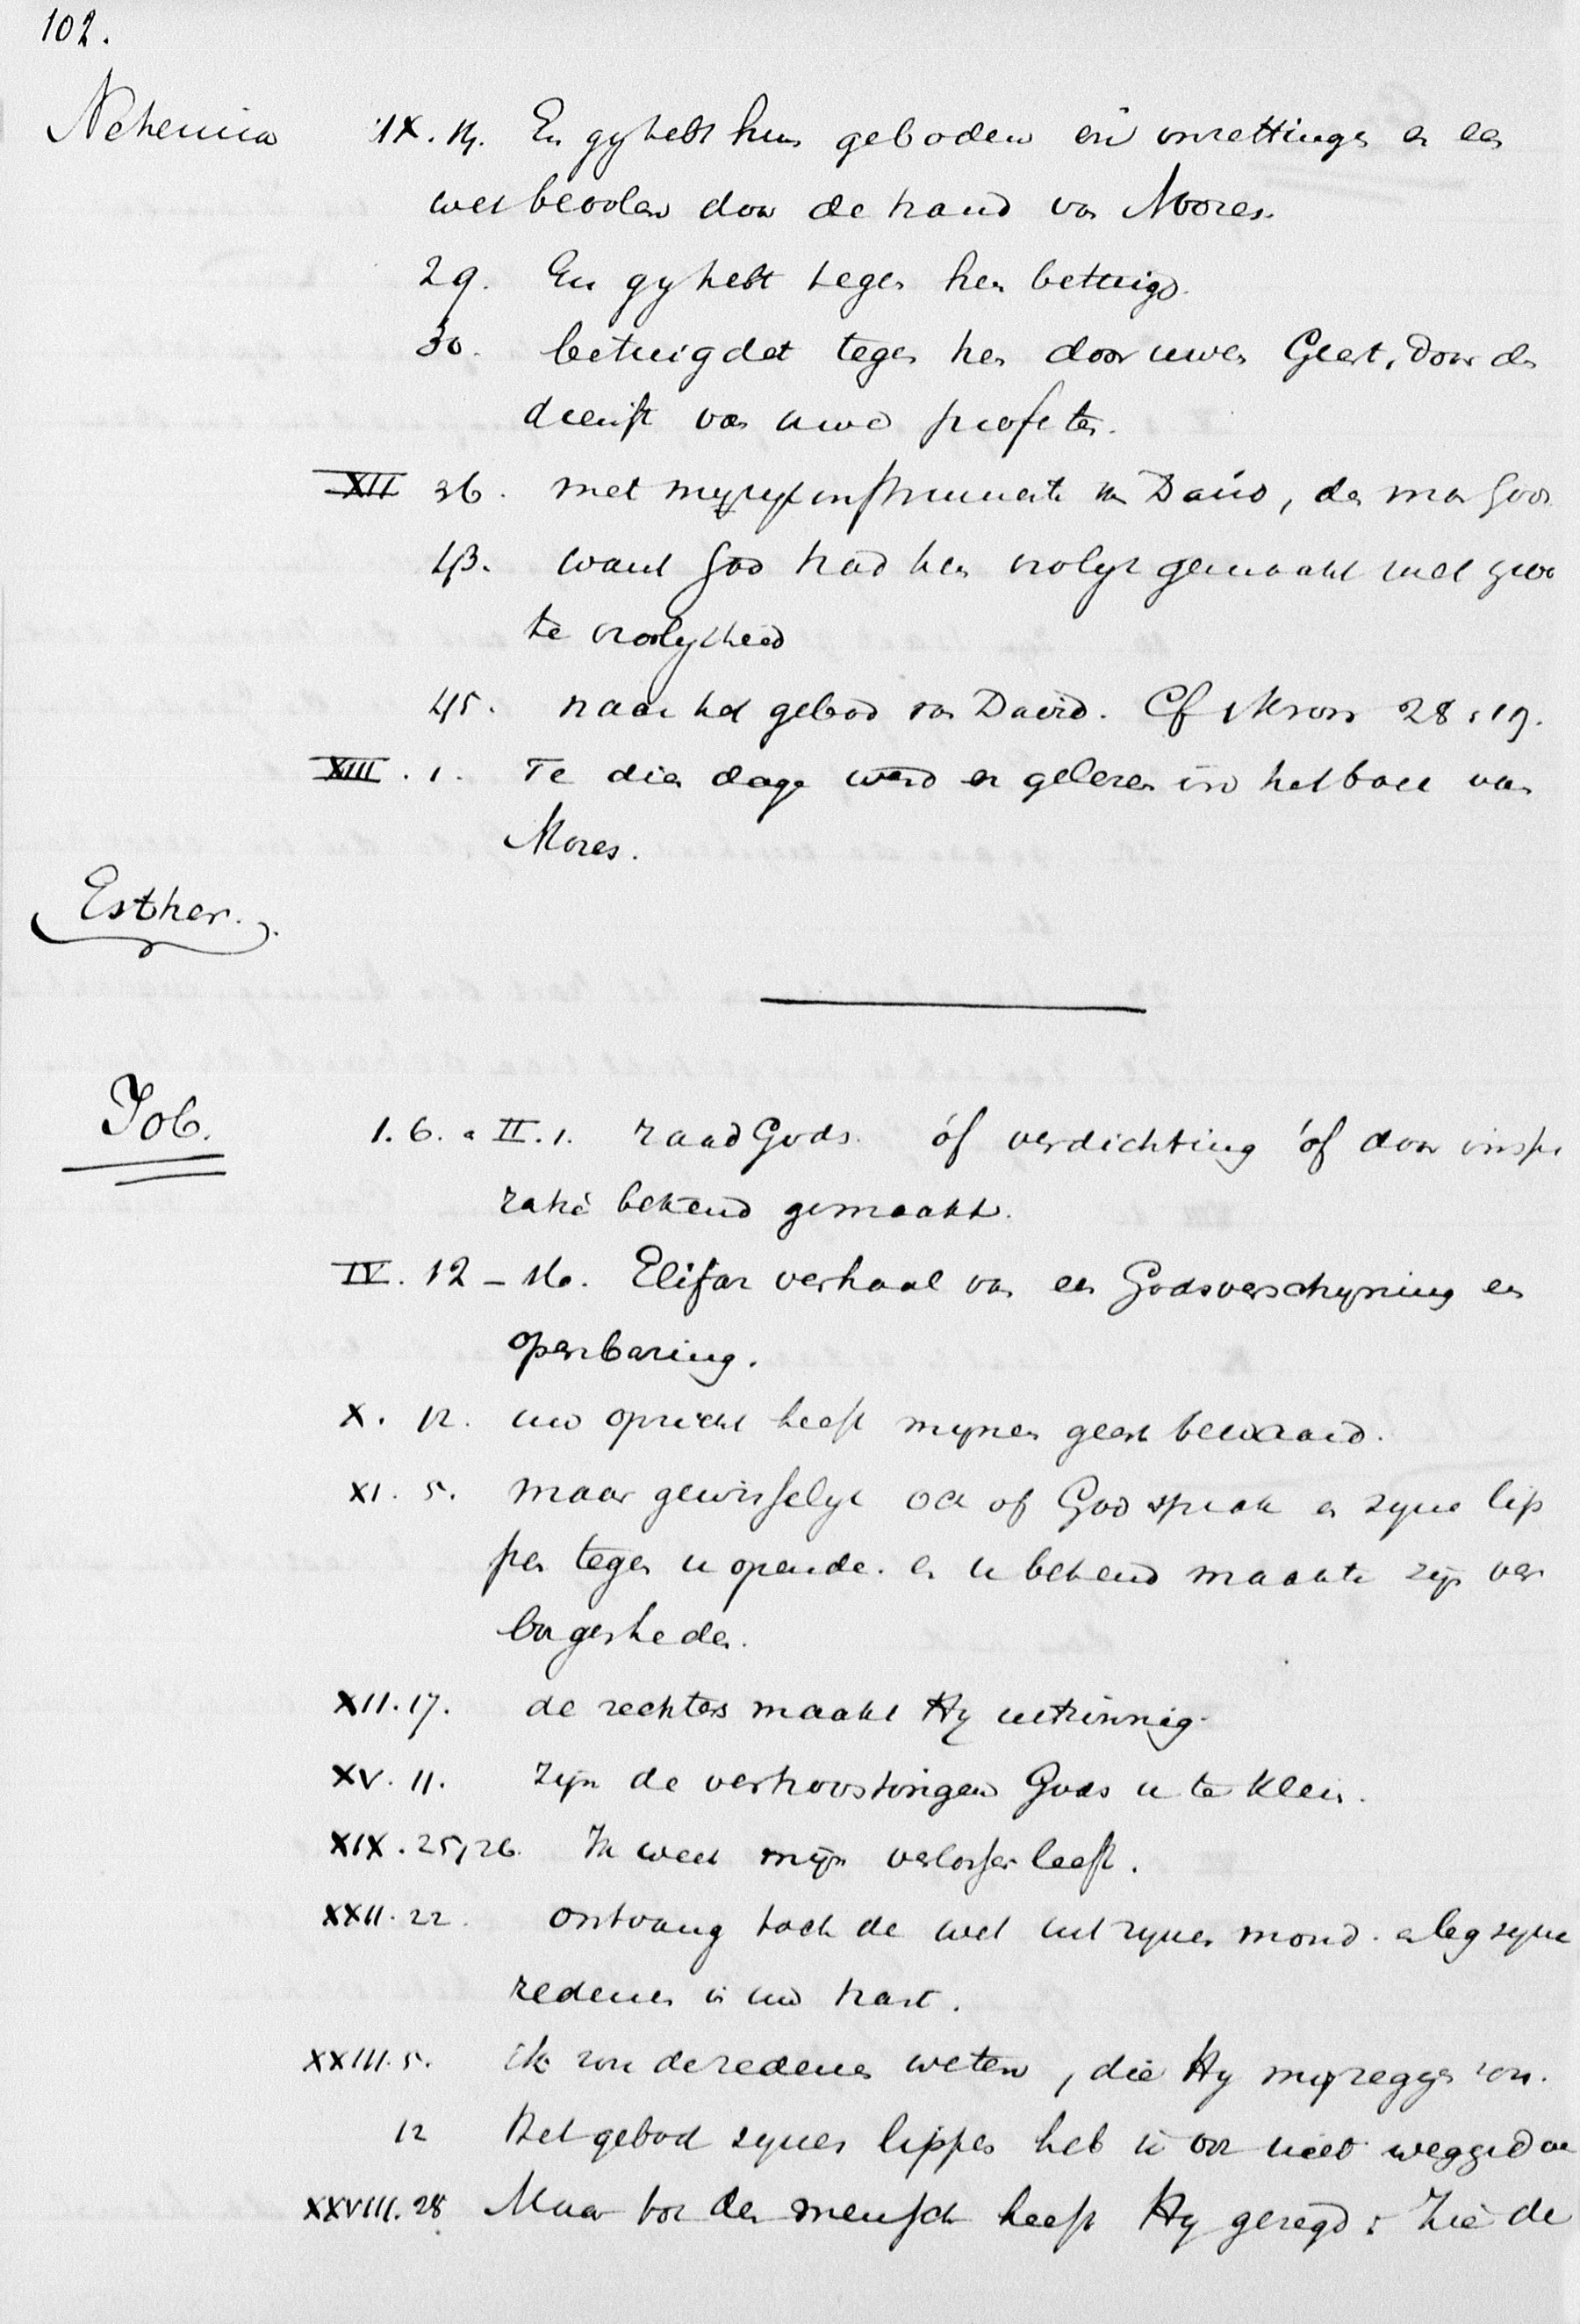 102.
Nehemia IX. 14. En gy hebt hun geboden en inzettingen en een
wet bevolen door de hand van Mozes.
29. En gy hebt tegen hen betuigd.
30. betuigdet tegen hen door uwen Geest, door den
dienst van uwe profeten.
XII 36. met muzyk instrumenten van David, den man Gods
43. want God had hen vrolyk gemaakt met groo
te vroolykheid
45. naar het gebod van David. Cf 1 Kron 28:19.
XIII. 1. Te dien dage werd er gelezen in het boek van
Mozes.
Esther.
Job. 1. 6. & II. 1. raad Gods. óf verdichting óf door inspi
ratie bekend gemaakt.
IV. 12 - 16. Elifaz verhaal van een Godsverschyning en
openbaring.
X. 12. uw opzicht heeft mynen geest bewaard.
XI. 5. maar gewisselyk och of God sprak en zyne lip
pen tegen u opende. en u bekend maakte zijn ver
borgenheden.
XII. 17. de rechters maakt Hy uitzinnig.
XV. 11. zijn de vertroostingen Gods u te klein.
XIX. 25, 26. Ik weet mijn verlosser leeft.
XXII. 22. ontvang toch de wet uit zynen mond. en leg zyne
redenen in uw hart.
XXIII. 5. ik zou de redenen weten, die Hy my zeggen zou.
12 Het gebod zyner lippen heb ik ook niet weggedaan
XXVIII. 28 Maar tot den mensch heeft Hy gezegd: Zie de